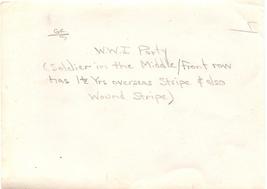 W.W.I Party
(Soldier in the Middle/Front row
has 1½ Yrs overseas Stripe & also
Wound Stripe)